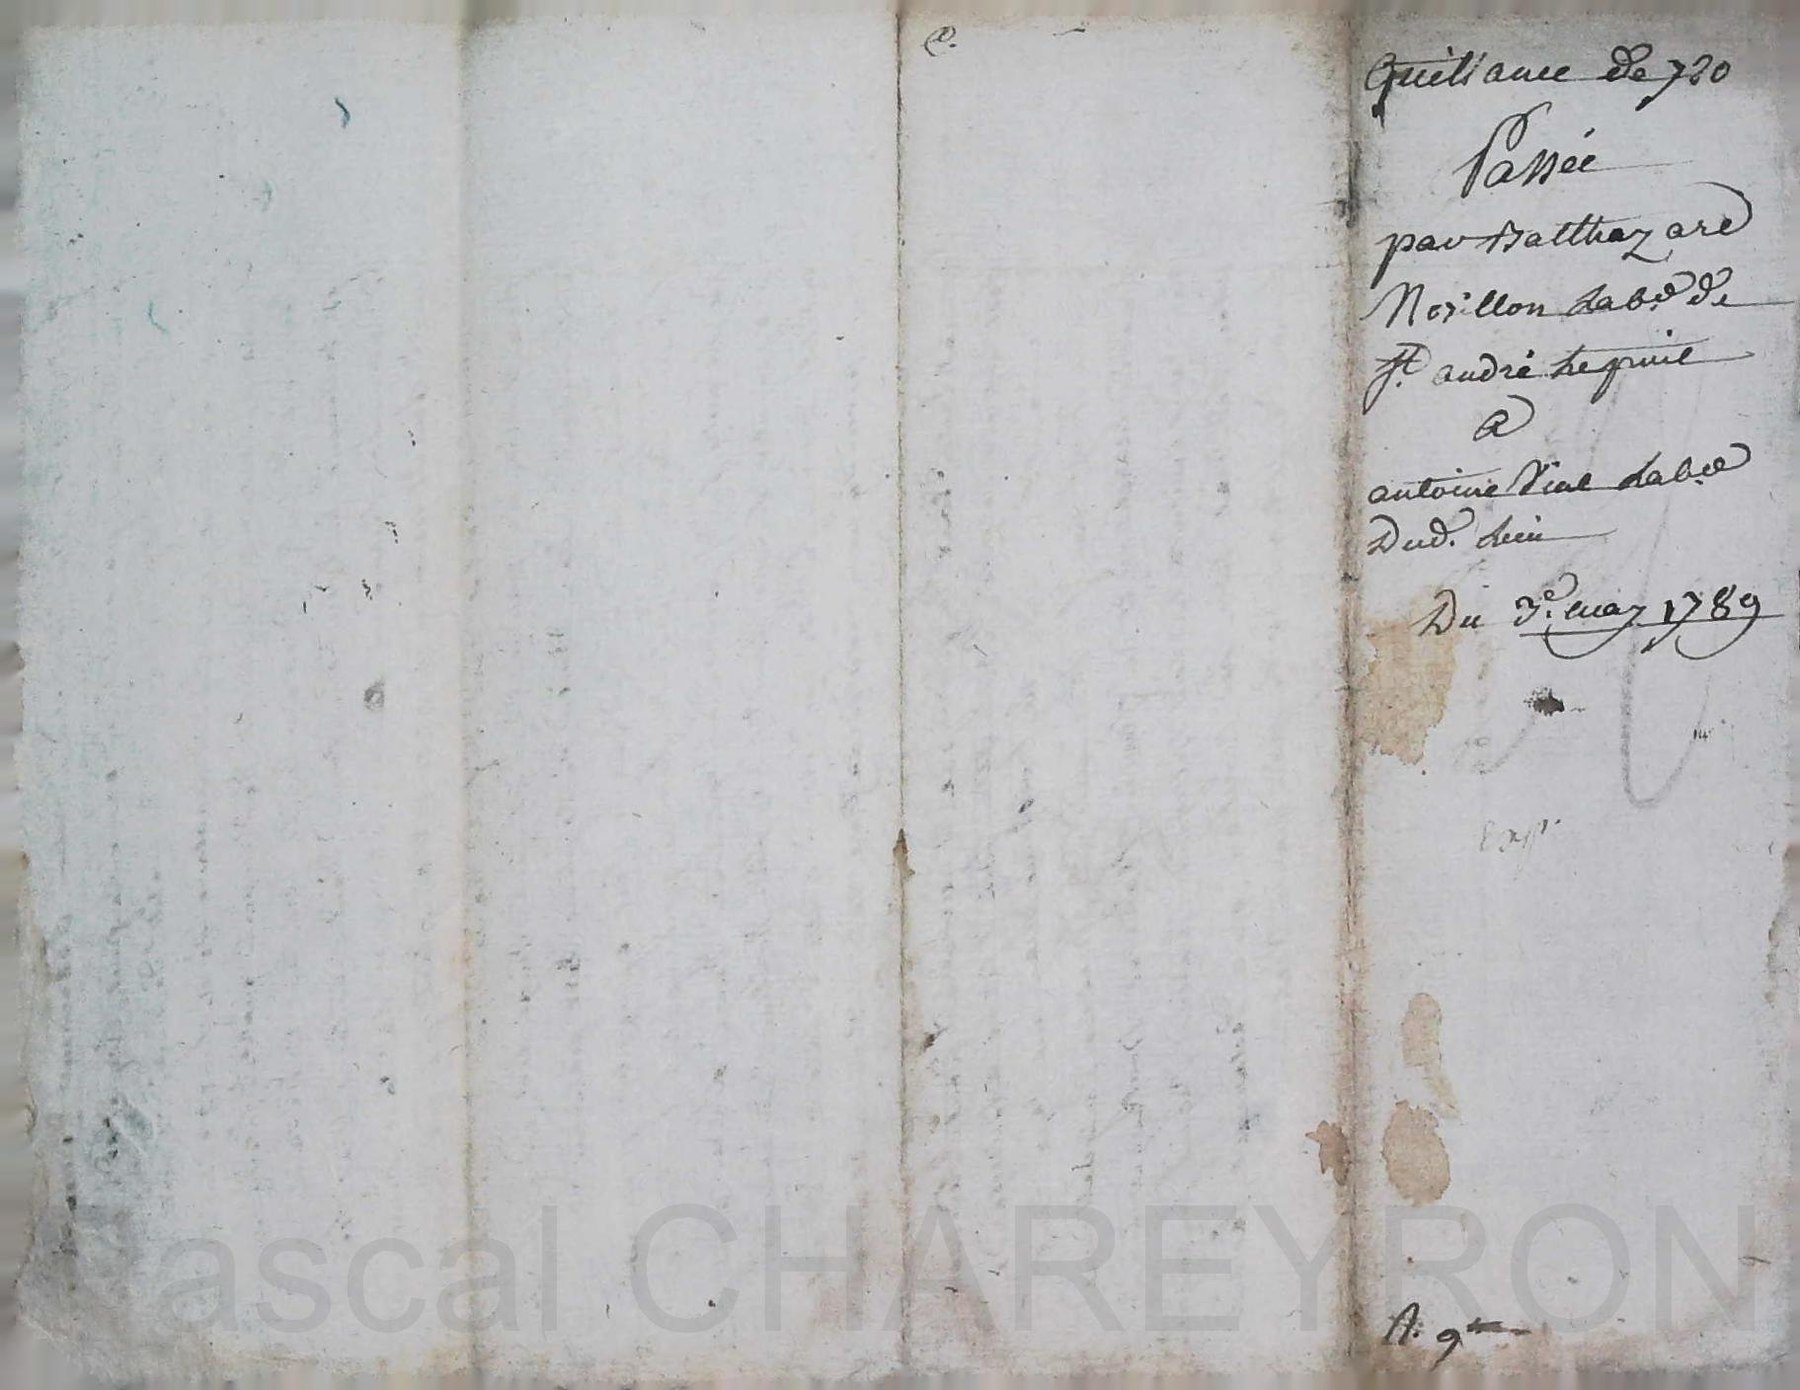 Quittance de 720
Passée
par Balthazard
Morillon Labr. de
St. andré Le puit
a
antoine Vial Labr.
Dud. Lieu
Du 3e. may 1789
Exp.
ascal CHAREYRON